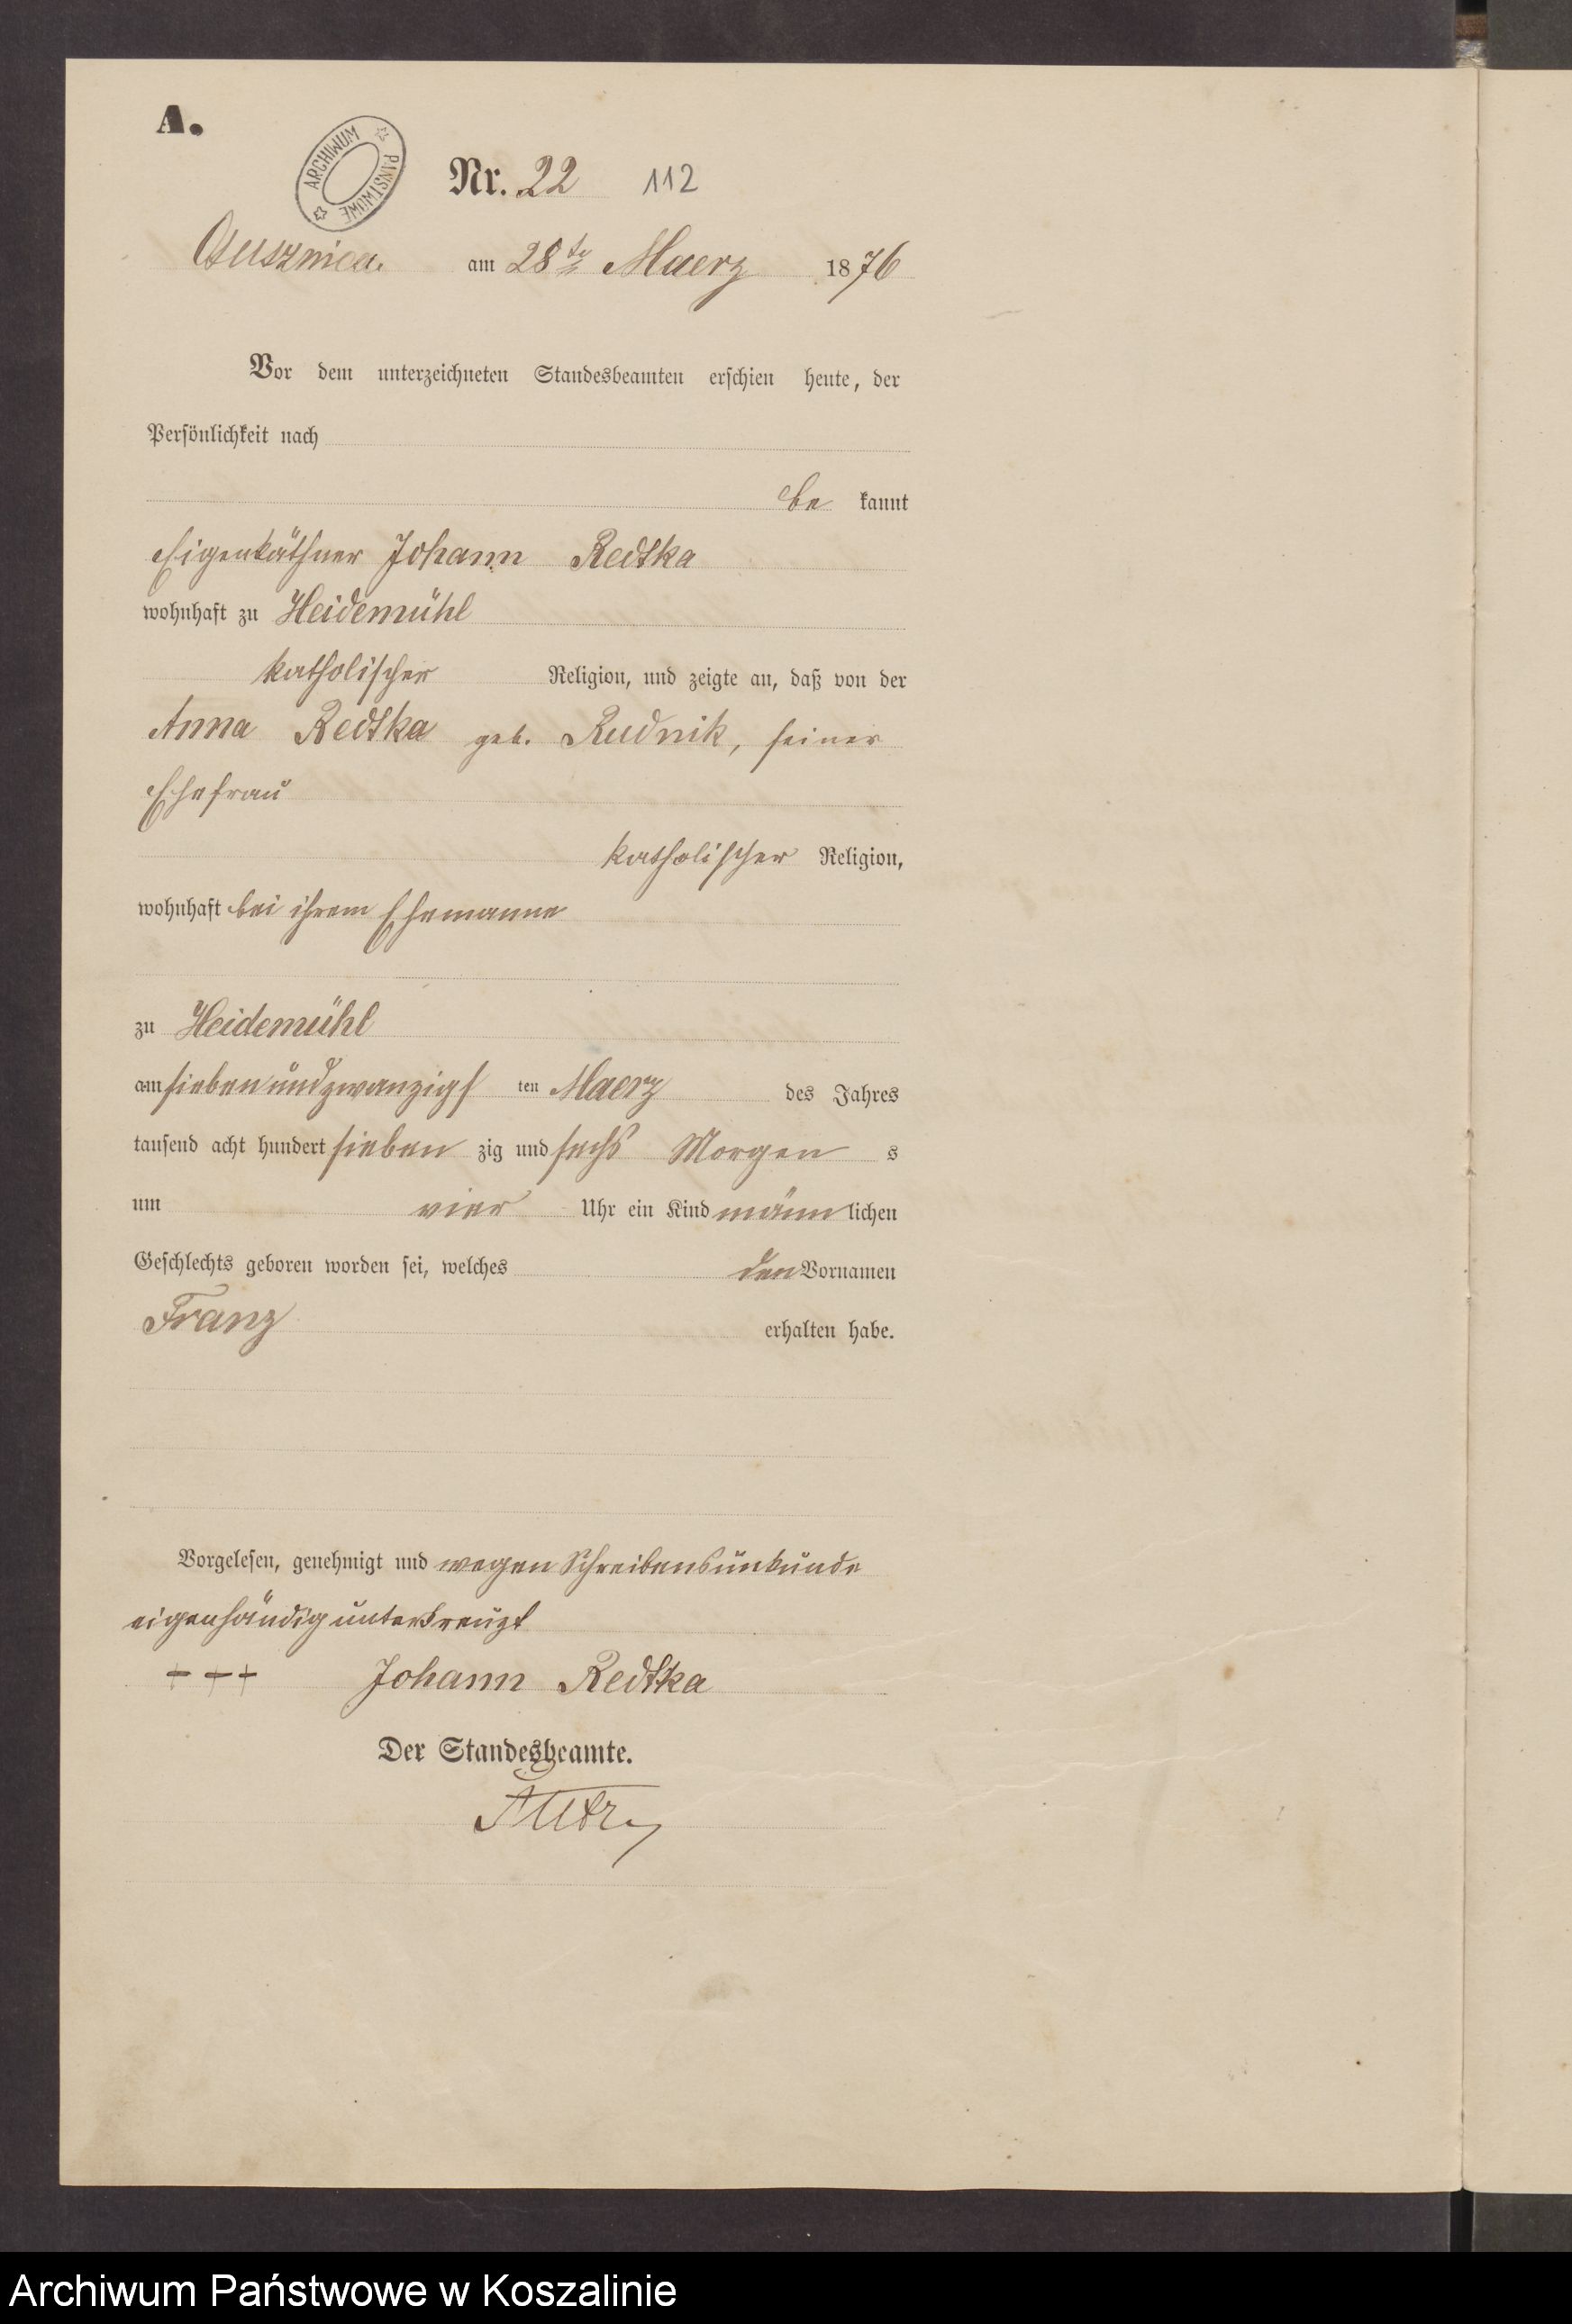 A.
ARCHIWUM PAŃSTWOWE
Nr. 22 112
Ossusznica am 28te Maerz 1876
Vor dem unterzeichneten Standesbeamten erschien heute, der
Persönlichkeit nach
be kannt
Eigenkäthner Johann Redtka
wohnhaft zu Heidemühl
katholischer Religion, und zeigte an, daß von der
Anna Redtka geb. Rudnik, seiner
Ehefrau
katholischer Religion,
wohnhaft bei ihrem Ehemanne
zu Heidemühl
am siebenundzwanzigs ten Maerz des Jahres
tausend acht hundert sieben zig und sechs Morgen s
um vier Uhr ein Kind männ lichen
Geschlechts geboren worden sei, welches den Vornamen
Franz erhalten habe.
Vorgelesen, genehmigt und wegen Schreibensunkunde
eigenhändig unterkreuzt
+ + + Johann Redtka
Der Standesbeamte.
Archiwum Państwowe w Koszalinie